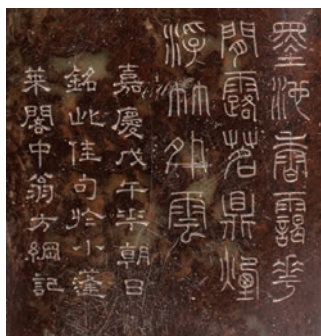 墨池香靄華
間露茗鼎煙
浮竹外雲
嘉慶戊午華朝日
銘此佳句於小蓬
萊閣中翁方綱記